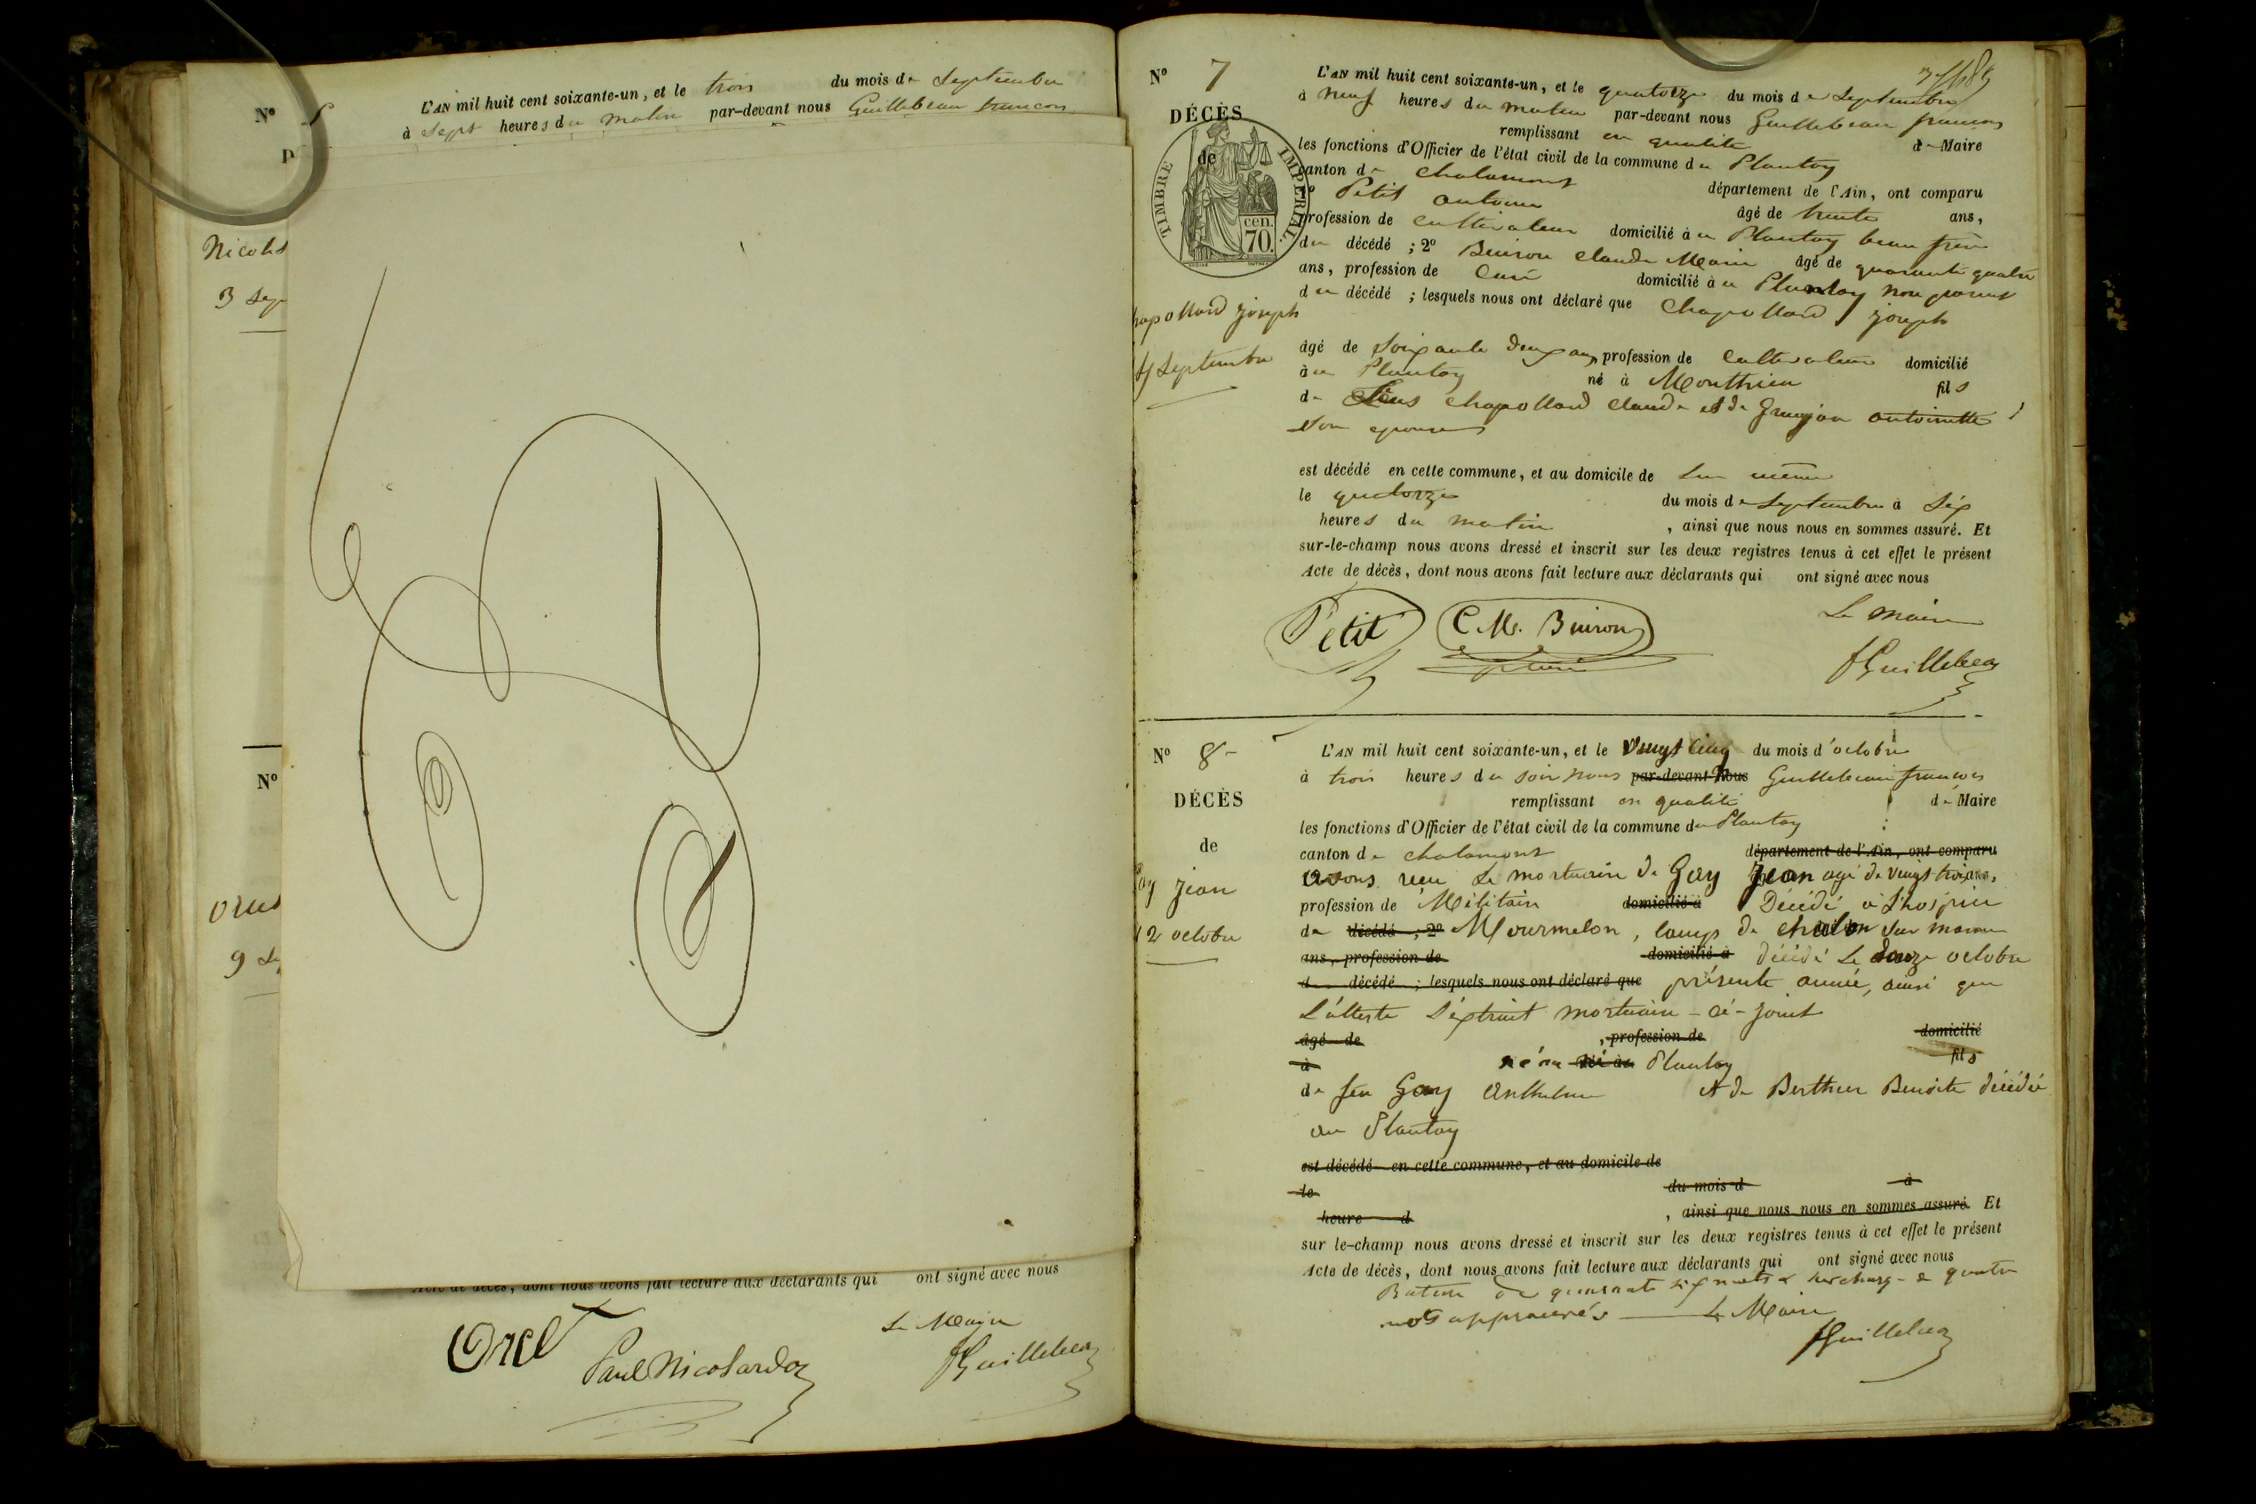 L'AN mil huit cent soixante-un, et le trois du mois de Septembre
N° 5 à Sept heures du matin par-devant nous Guillebeau francois
D
Nicolas
3 Sep
N°
Orcel
9 Se
Acte de décès, dont nous avons fait lecture aux déclarants qui ont signé avec nous
Le Maire
Orcel Paul Nicolardoz fGuillebeau
N° 7 L'AN mil huit cent soixante-un, et le quatorze du mois de Septembre
à neuf heures du matin par-devant nous Guillebeau francois
DÉCÈS remplissant en qualité de Maire
de les fonctions d'Officier de l'état civil de la commune du Plantay
TIMBRE IMPERIAL.
cen. 70.
canton de Chalamont département de l'Ain, ont comparu
1° Petit antoine âgé de trente ans,
profession de cultivateur domicilié à u Plantay beau frère
du décédé ; 2° Buiron Claude Marie âgé de quarante quatre
ans, profession de Curé domicilié à u Plantay non parent
du décédé ; lesquels nous ont déclaré que Chapolard joseph
hapollard joseph
14 Septembre
âgé de Soixante deux ans, profession de Cultivateur domicilié
à u Plantay né à Monthieu fils
de feus Chapollard Claude et de Grugjon antoinette
son epouse
est décédé en cette commune, et au domicile de lui même
le quatorze du mois de Septembre à Six
heures du matin , ainsi que nous nous en sommes assuré. Et
sur-le-champ nous avons dressé et inscrit sur les deux registres tenus à cet effet le présent
Acte de décès, dont nous avons fait lecture aux déclarants qui ont signé avec nous
Le maire
Petit C. M. Buiron
fGuillebeau
N° 8 - L'AN mil huit cent soixante-un, et le vingt cinq du mois d'octobre
à trois heures du soir nous par-devant nous Guillebeau francois
DÉCÈS remplissant en qualité de Maire
les fonctions d'Officier de l'état civil de la commune du Plantay
de canton de Chalamont département de l'Ain, ont comparu
Gay Jean
12 octobre
avons reçu le mortuaire de Gay Jean agé de vingt trois ans,
profession de Militaire domicilié à Décédé à l'hospice
de décédé ; 2° Mourmelon, camp de chalon sur marne
ans, profession de domicilié à décédé le douze octobre
d décédé ; lesquels nous ont déclaré que présente année, ainsi que
L'atteste L'éxtrait mortuaire - ci-joint
âgé de , profession de domicilié
à né au né au Plantay fils
de feu Gay Anthelme et de Berthier Benoite décédée
au Plantay
est décédé en cette commune, et au domicile de
le du mois d à
heure d , ainsi que nous nous en sommes assuré Et
sur le-champ nous avons dressé et inscrit sur les deux registres tenus à cet effet le présent
Acte de décès, dont nous avons fait lecture aux déclarants qui ont signé avec nous
Rature de quarante six mots & surcharge de quatre
mots approuvés Le Maire
fGuillebeau